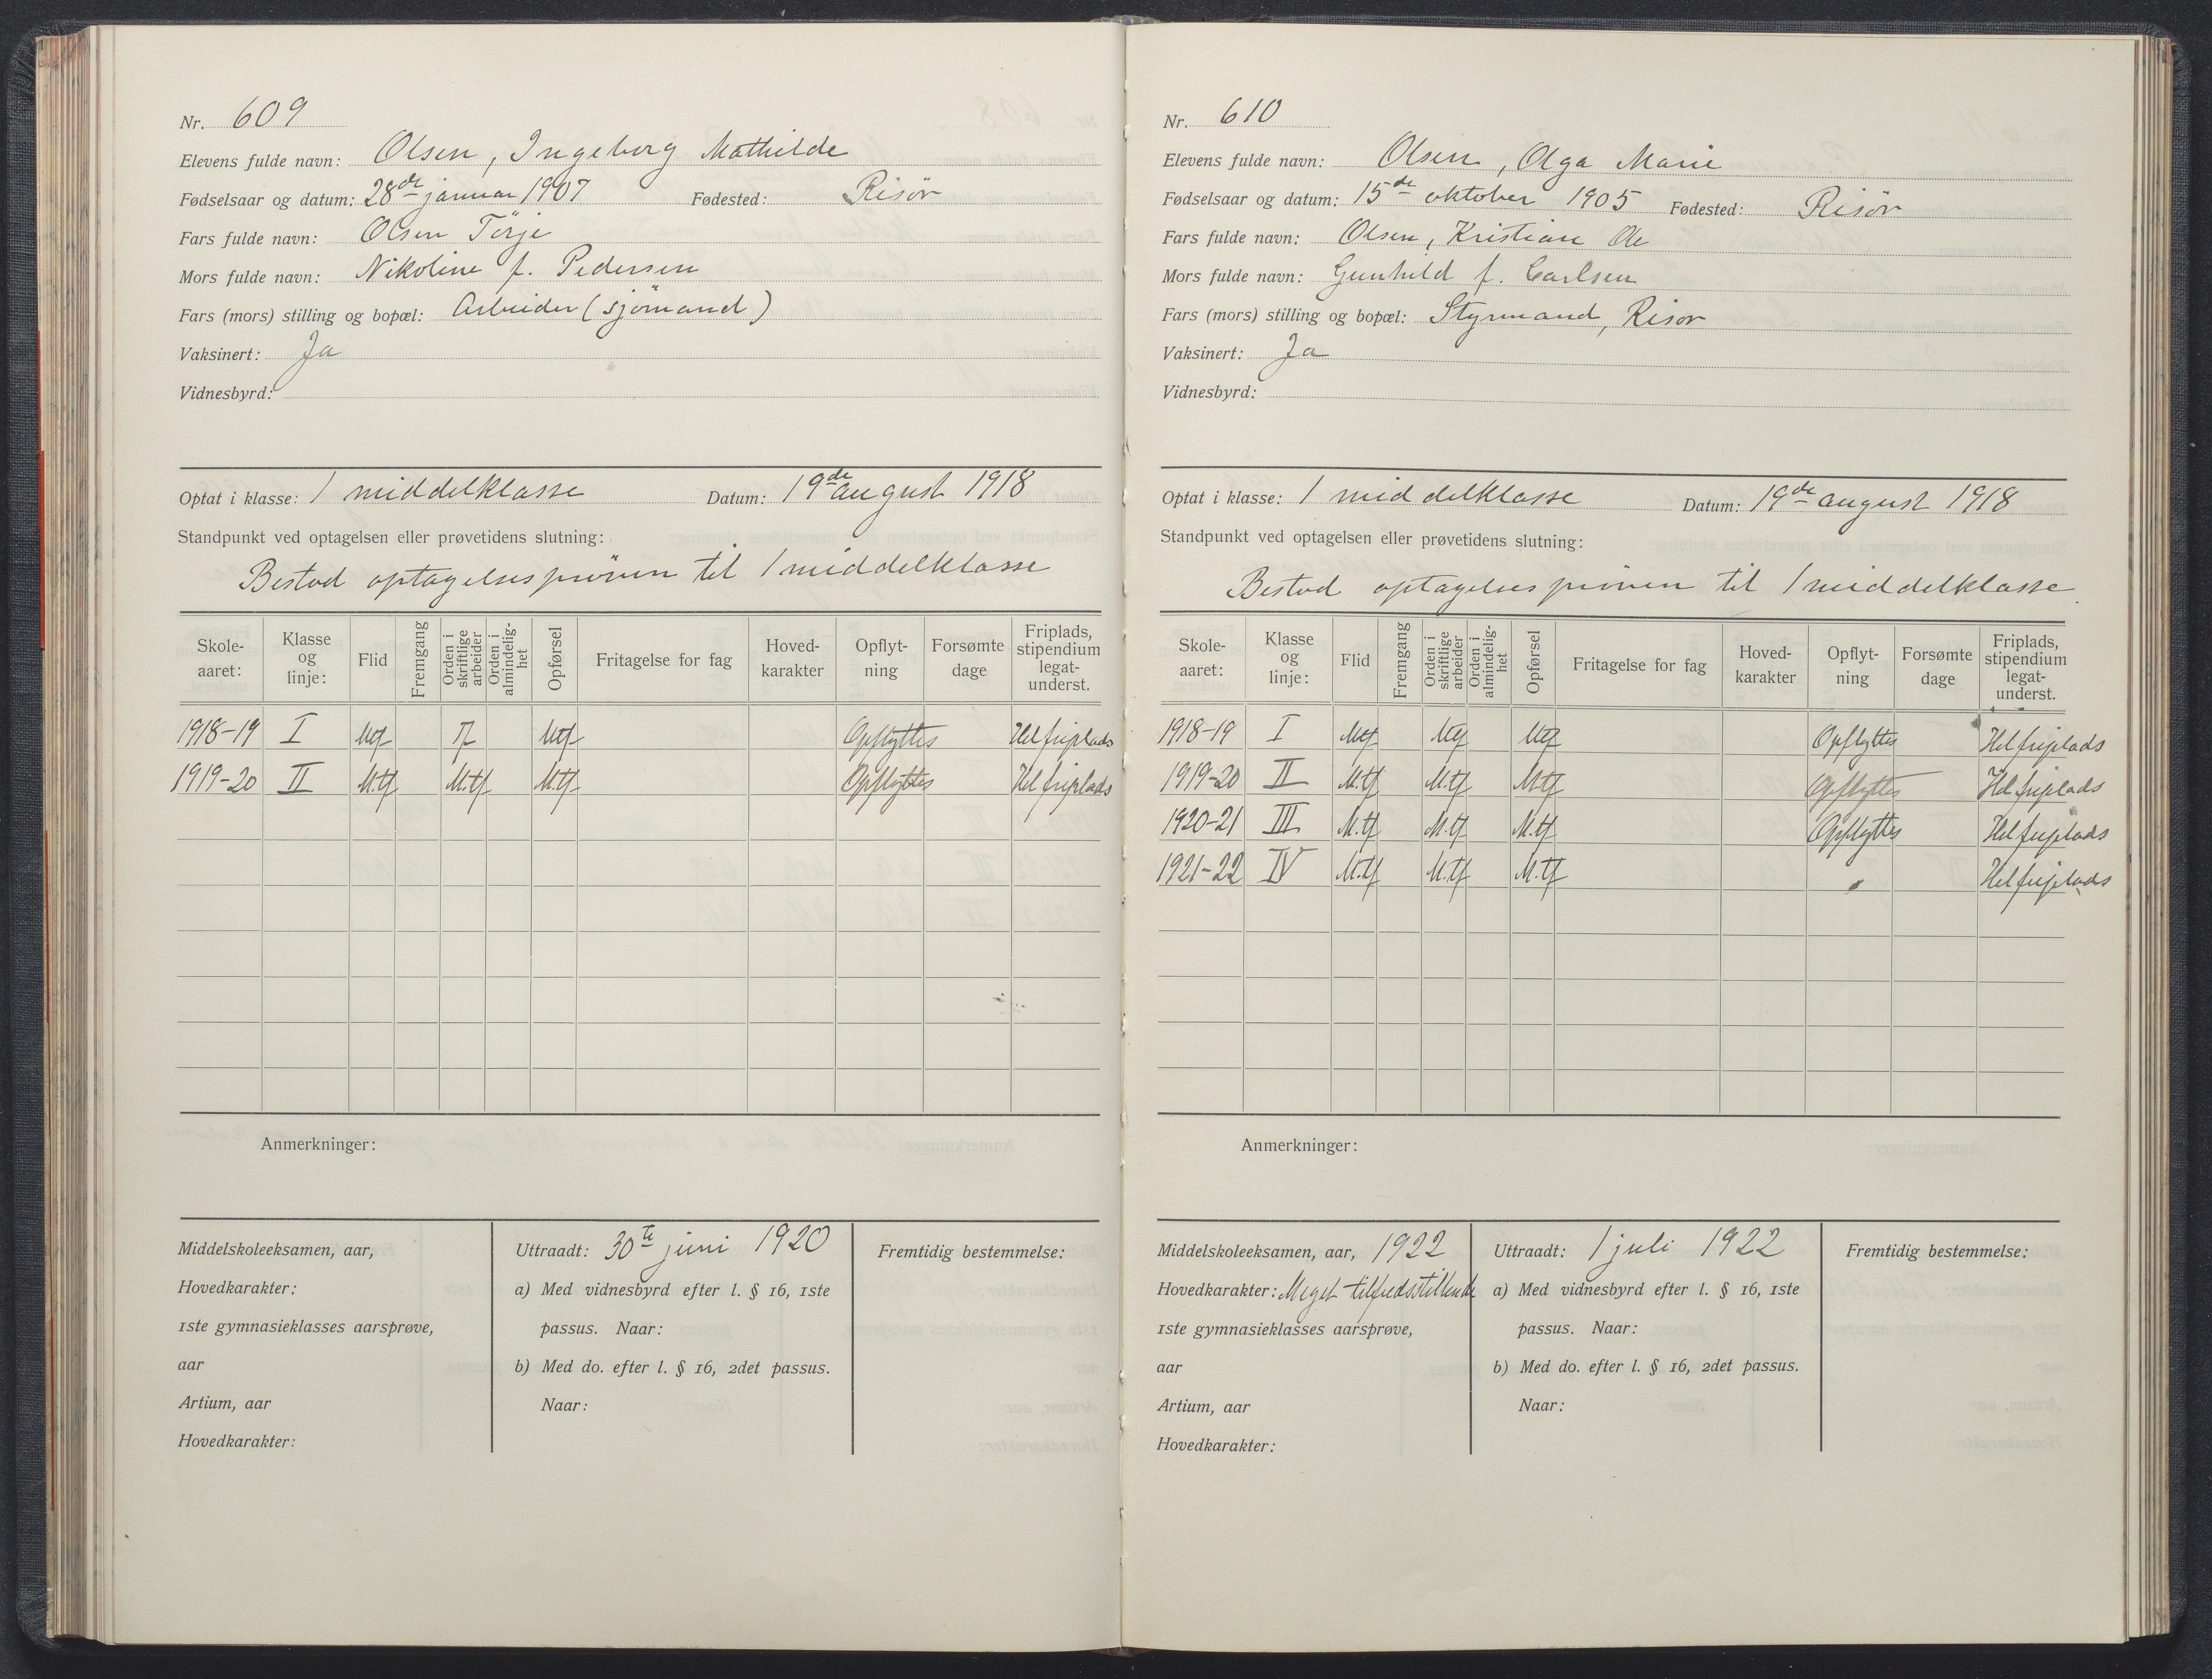 Nr. 609
Elevens fulde navn: Olsen, Ingeborg Mathilde
Fødselsaar og datum: 28de januar 1907 Fødested: Risör
Fars fulde navn: Olsen Törje
Mors fulde navn: Nikoline f. Pedersen
Fars (mors) stilling og bopæl: Arbeider (sjömand)
Vaksinert: Ja
Vidnesbyrd:
Optat i klasse: 1 middelklasse Datum: 19de august 1918
Standpunkt ved optagelsen eller prøvetidens slutning:
Bestod optagelsespröven til 1 middelklasse
Skole-aaret: Klasse og linje: Flid Fremgang Orden i skriftlige arbeider Orden i almindelig-het Opførsel Fritagelse for fag Hoved-karakter Opflyt-ning Forsømte dage Friplads, stipendium legat-underst.
1918-19 I Mtf Mtf Opflyttes Hel friplads
1919-20 II M.tf M.tf M.tf Opflyttes Hel friplads
Anmerkninger:
Middelskoleeksamen, aar,
Hovedkarakter:
1ste gymnasieklasses aarsprøve,
aar
Artium, aar
Hovedkarakter:
Uttraadt: 30te juni 1920
a) Med vidnesbyrd efter l. § 16, 1ste
passus. Naar:
b) Med do. efter l. § 16, 2det passus.
Naar:
Fremtidig bestemmelse:
Nr. 610
Elevens fulde navn: Olsen, Olga Marie
Fødselsaar og datum: 15de oktober 1905 Fødested: Risör
Fars fulde navn: Olsen, Kristian Ole
Mors fulde navn: Gunhild f. Carlsen
Fars (mors) stilling og bopæl: Styrmand, Risør
Vaksinert: Ja
Vidnesbyrd:
Optat i klasse: 1 middelklasse Datum: 19de august 1918
Standpunkt ved optagelsen eller prøvetidens slutning:
Bestod optagelsespröven til 1 middelklasse.
Skole-aaret: Klasse og linje: Flid Fremgang Orden i skriftlige arbeider Orden i almindelig-het Opførsel Fritagelse for fag Hoved-karakter Opflyt-ning Forsømte dage Friplads, stipendium legat-underst.
1918-19 I Mtf Mtf Mtf Opflyttes Hel friplads
1919-20 II M.tf M.tf M.tf Opflyttes Hel friplads
1920-21 III M.tf M.tf M.tf Opflyttes Hel friplads
1921-22 IV M.tf M.tf M.tf Hel friplads
Anmerkninger:
Middelskoleeksamen, aar, 1922
Hovedkarakter: Meget tilfredsstillende
1ste gymnasieklasses aarsprøve,
aar
Artium, aar
Hovedkarakter:
Uttraadt: 1 juli 1922
a) Med vidnesbyrd efter l. § 16, 1ste
passus. Naar:
b) Med do. efter l. § 16, 2det passus.
Naar:
Fremtidig bestemmelse: